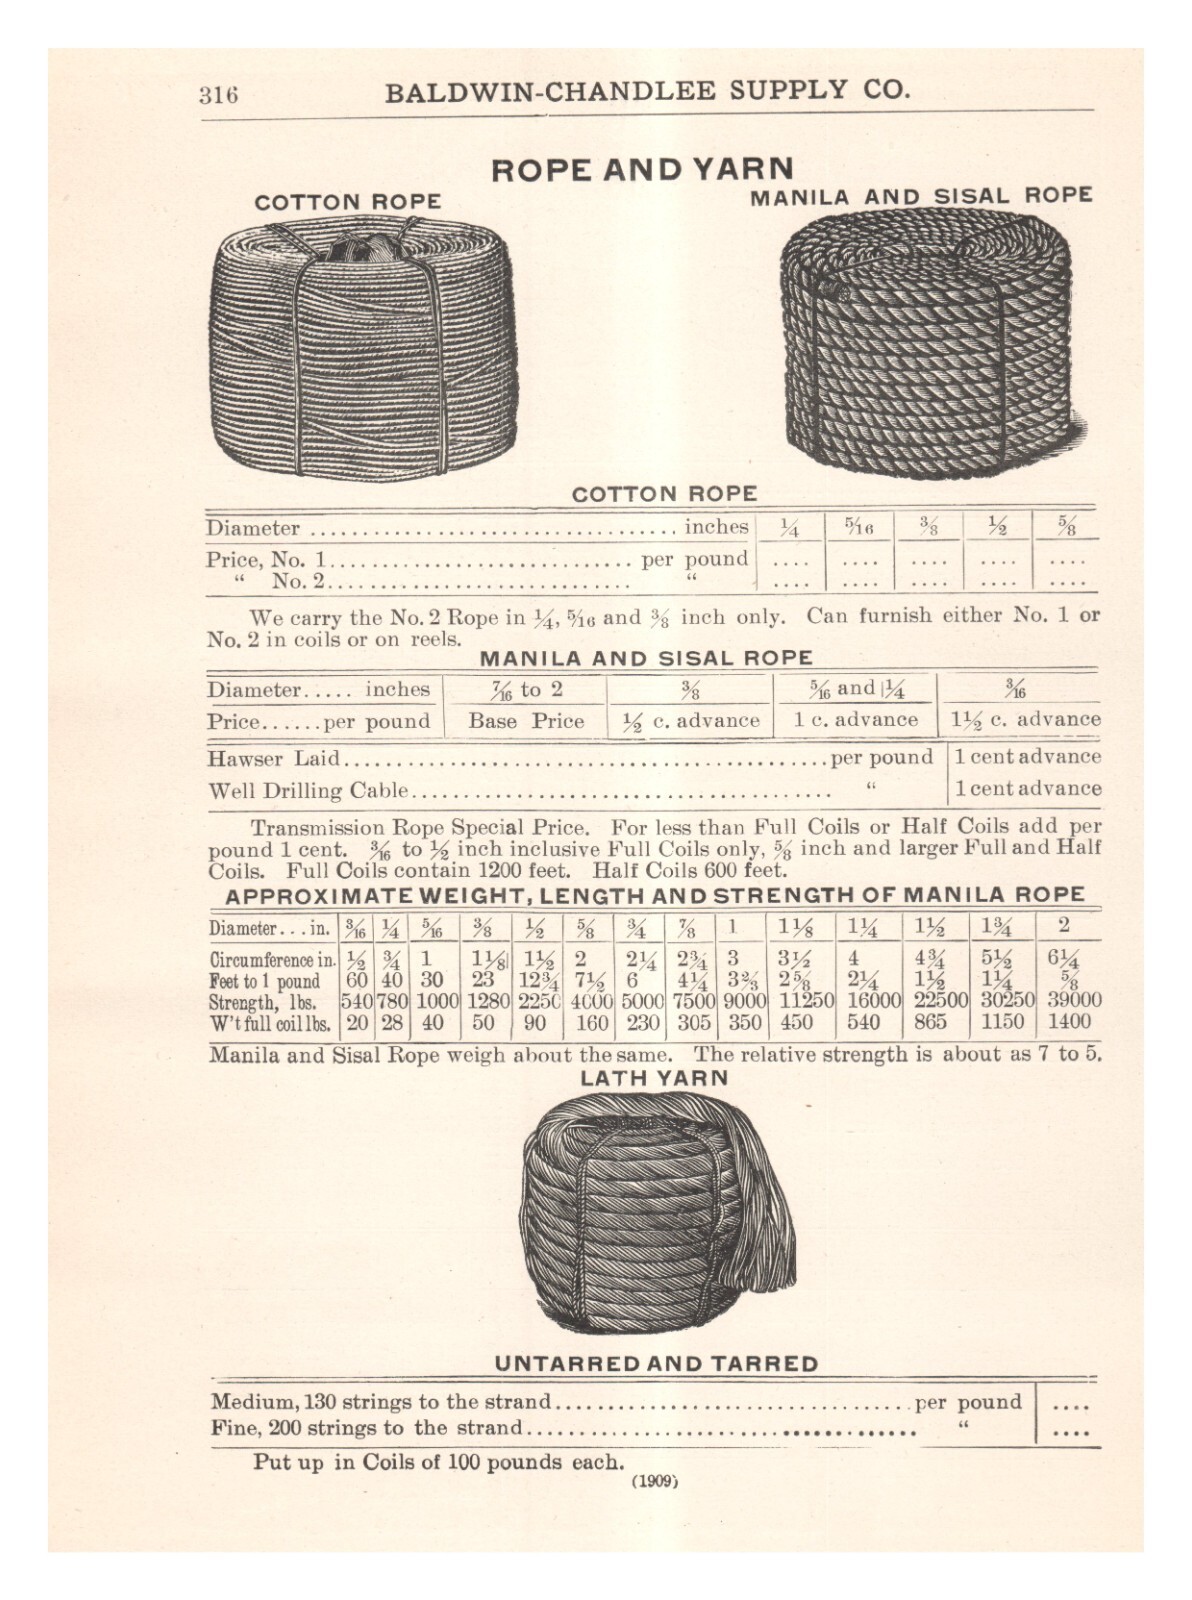 316 BALDWIN-CHANDLEE SUPPLY CO.
ROPE AND YARN
COTTON ROPE
MANILA AND SISAL ROPE
COTTON ROPE
Diameter .................................. inches ¼ 5/16 ⅜ ½ ⅝
Price, No. 1............................. per pound .... .... .... .... ....
“ No. 2............................. “ .... .... .... .... ....
We carry the No. 2 Rope in ¼, 5/16 and ⅜ inch only. Can furnish either No. 1 or
No. 2 in coils or on reels.
MANILA AND SISAL ROPE
Diameter..... inches 7/16 to 2 ⅜ 5/16 and ¼ 3/16
Price......per pound Base Price ½ c. advance 1 c. advance 1½ c. advance
Hawser Laid..............................................per pound 1 cent advance
Well Drilling Cable........................................ “ 1 cent advance
Transmission Rope Special Price. For less than Full Coils or Half Coils add per
pound 1 cent. 3/16 to ½ inch inclusive Full Coils only, ⅝ inch and larger Full and Half
Coils. Full Coils contain 1200 feet. Half Coils 600 feet.
APPROXIMATE WEIGHT, LENGTH AND STRENGTH OF MANILA ROPE
Diameter...in. 3/16 ¼ 5/16 ⅜ ½ ⅝ ¾ ⅞ 1 1⅛ 1¼ 1½ 1¾ 2
Circumference in. ½ ¾ 1 1⅛ 1½ 2 2¼ 2¾ 3 3½ 4 4¾ 5½ 6¼
Feet to 1 pound 60 40 30 23 12¾ 7½ 6 4¼ 3⅔ 2⅝ 2¼ 1½ 1¼ ⅝
Strength, lbs. 540 780 1000 1280 2250 4000 5000 7500 9000 11250 16000 22500 30250 39000
W't full coil lbs. 20 28 40 50 90 160 230 305 350 450 540 865 1150 1400
Manila and Sisal Rope weigh about the same. The relative strength is about as 7 to 5.
LATH YARN
UNTARRED AND TARRED
Medium, 130 strings to the strand.................................per pound ....
Fine, 200 strings to the strand..................................... “ ....
Put up in Coils of 100 pounds each.
(1909)